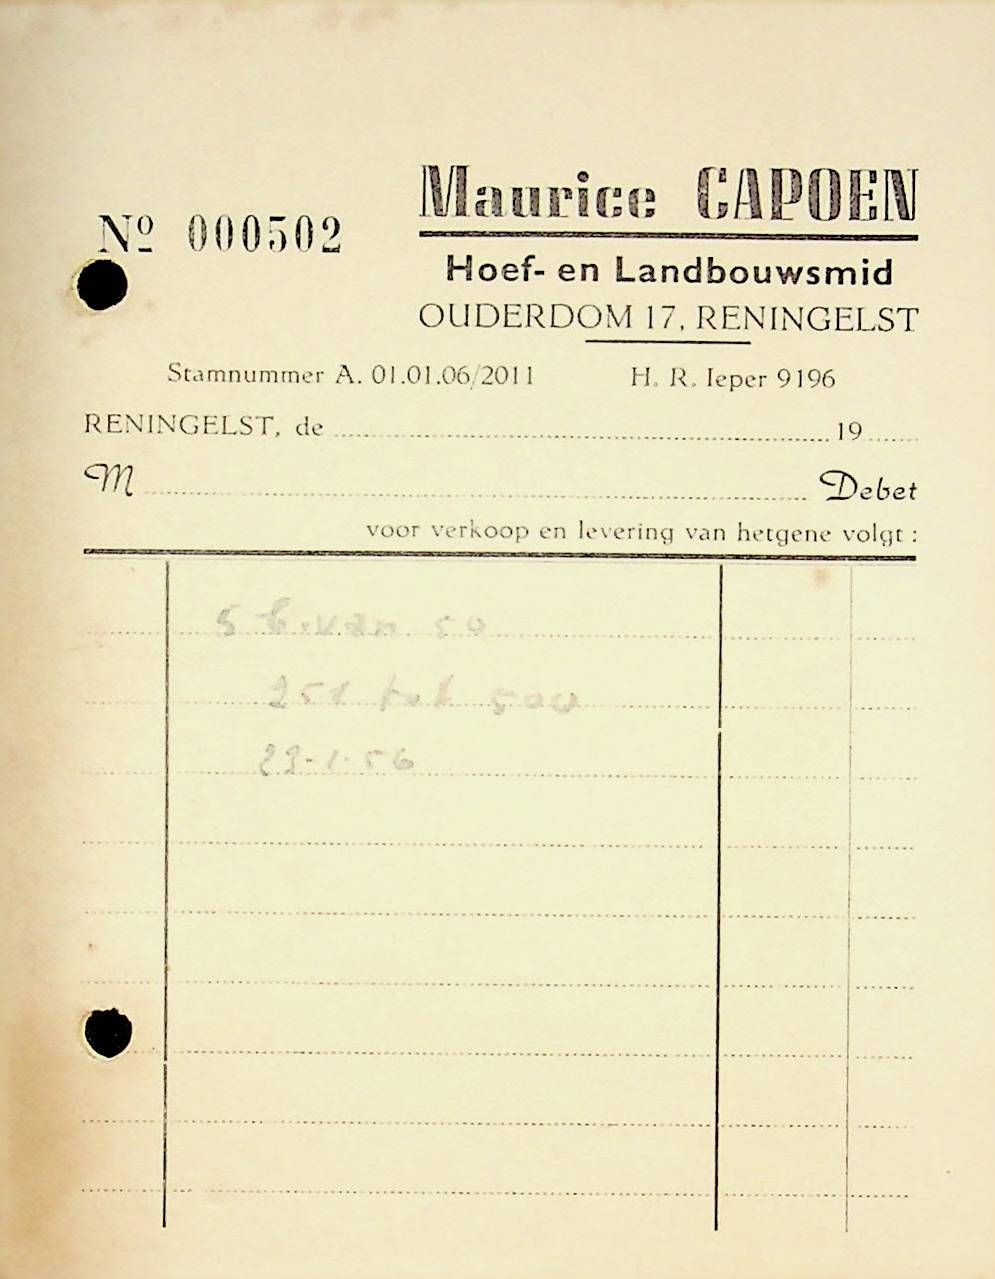 Nº 000502
Maurice CAPOEN
Hoef- en Landbouwsmid
OUDERDOM 17, RENINGELST
Stamnummer A. 01.01.06/2011 H. R. Ieper 9196
RENINGELST, de 19
M Debet
voor verkoop en levering van hetgene volgt :
5 b. van 50
251 tot 500
23-1-56